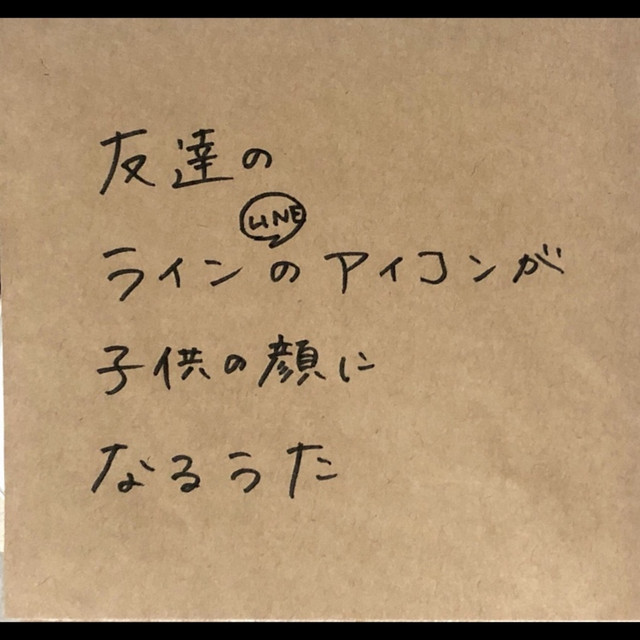 友達の
LINE
ラインのアイコンが
子供の顔に
なるうた